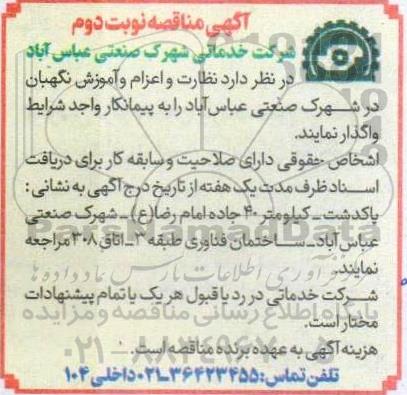 آگهی مناقصه نوبت دوم
شرکت خدماتی شهرک صنعتی عباس آباد
در نظر دارد نظارت و اعزام و آموزش نگهبان
در شهرک صنعتی عباس‌آباد را به پیمانکار واجد شرایط
واگذار نمایند.
اشخاص حقوقی دارای صلاحیت و سابقه کار برای دریافت
اسناد ظرف مدت یک هفته از تاریخ درج آگهی به نشانی:
پاکدشت - کیلومتر ۴۰ جاده امام رضا(ع) - شهرک صنعتی
عباس آباد - ساختمان فناوری طبقه ۳ - اتاق ۳۰۸ مراجعه
نمایند.
شرکت خدماتی در رد یا قبول هر یک یا تمام پیشنهادات
مختار است.
هزینه آگهی به عهده برنده مناقصه است.
تلفن تماس: ۳۶۴۲۳۴۵۵-۰۲۱ داخلی ۱۰۴
ParsNamadData
فرآوری اطلاعات پارس نماد داده ها
پایگاه اطلاع رسانی مناقصه و مزایده